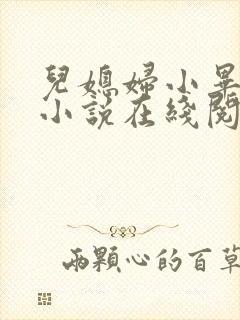 兒媳婦小畢
小說在綫閱
兩顆心的百草